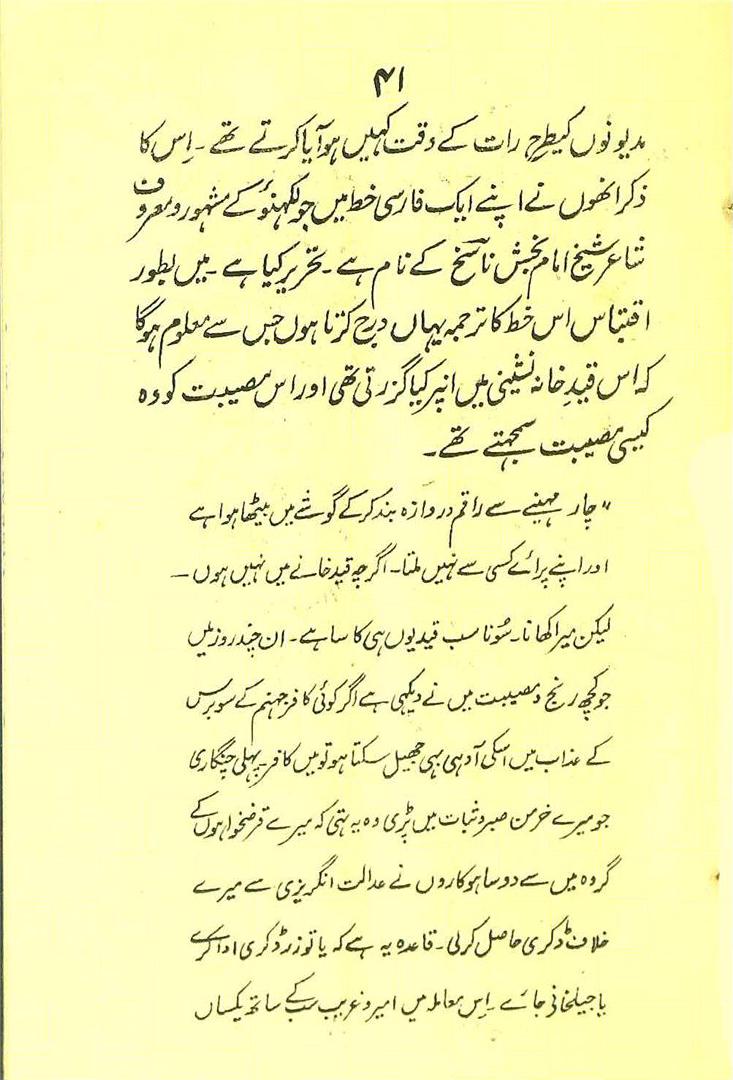 ۴۱
مدیونوں کیطرح رات کے وقت کہیں ہو آیا کرتے تھے ۔ اِس کا
ذکر انھوں نے اپنے ایک فارسی خط میں جو لکہنؤ کے مشہور و معروف
شاعر شیخ امام بخش ناسخ کے نام ہے ۔ تحریر کیا ہے ۔ میں بطور
اقتباس اس خط کا ترجمہ یہاں درج کرتا ہوں جس سے معلوم ہوگا
کہ اس قیدِ خانہ نشینی میں انپر کیا گزرتی تھی اور اس مصیبت کو وہ
کیسی مصیبت سمجہتے تھے ۔
" چار مہینے سے راقم دروازہ بند کرکے گوشے میں بیٹھا ہوا ہے
اور اپنے پرائے کسی سے نہیں ملتا ۔ اگرچہ قید خانے میں نہیں ہوں —
لیکن میرا کھانا ۔ سُونا سب قیدیوں ہی کا سا ہے ۔ ان چند روز میں
جو کچھ رنج و مصیبت میں نے دیکہی ہے اگر کوئی کافر جہنم کے سو برس
کے عذاب میں اسکی آدہی بہی جھیل سکتا ہو تو میں کافر ۔ پہلی چنگاری
جو میرے خرمن صبر و ثبات میں پڑی وہ یہ تہی کہ میرے قرضخواہوں کے
گروہ میں سے دو ساہوکاروں نے عدالت انگریزی سے میرے
خلاف ڈکری حاصل کرلی ۔ قاعدہ یہ ہے کہ یا تو زر ڈکری ادا کرے
یا جیلخانی جائے ۔ اِس معاملہ میں امیر و غریب سب کے ساتھ یکساں